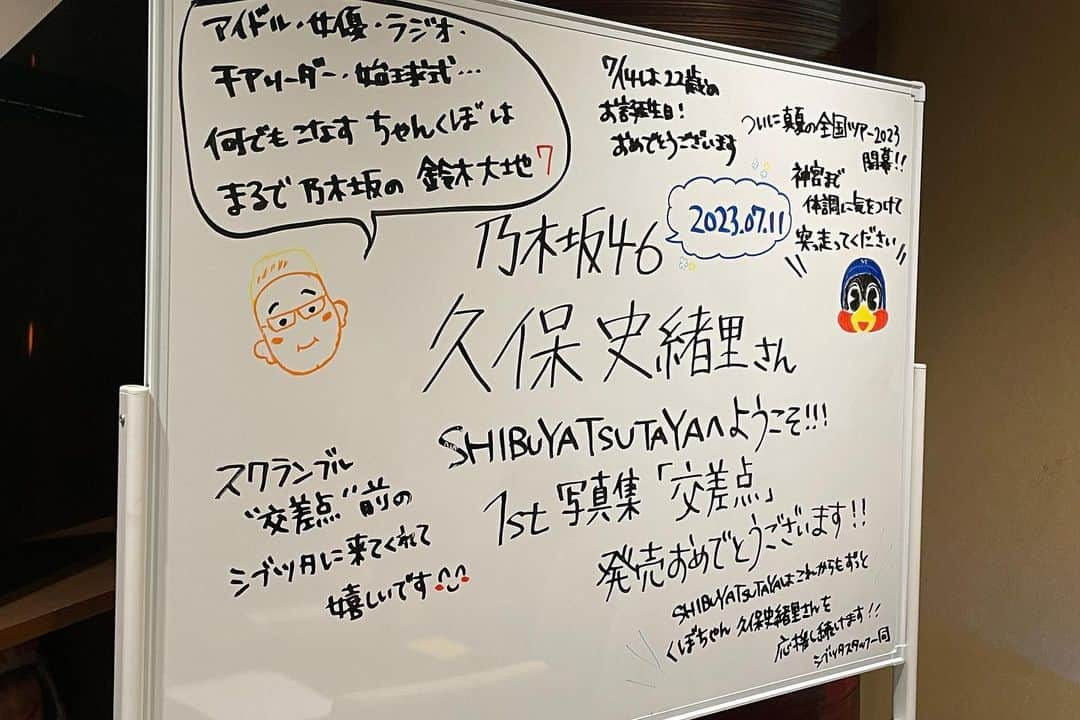 アイドル・女優・ラジオ、
チアリーダー・始球式…
何でもこなす ちゃんくぼ は
まるで乃木坂の 鈴木大地7
7/14は22歳の
お誕生日!
おめでとうございます
ついに真夏の全国ツアー2023
開幕!!
神宮まで
体調に気をつけて
突っ走ってください
2023.07.11
乃木坂46
久保史緒里さん
SHIBUYATSUTAYAへようこそ!!!
1st 写真集「交差点」
発売おめでとうございます!!
スクランブル
"交差点"前の
シブツタに来てくれて
嬉しいです
SHIBUYATSUTAYAはこれからもずっと
くぼちゃん 久保史緒里さんを
応援し続けます!!
シブツタスタッフ一同